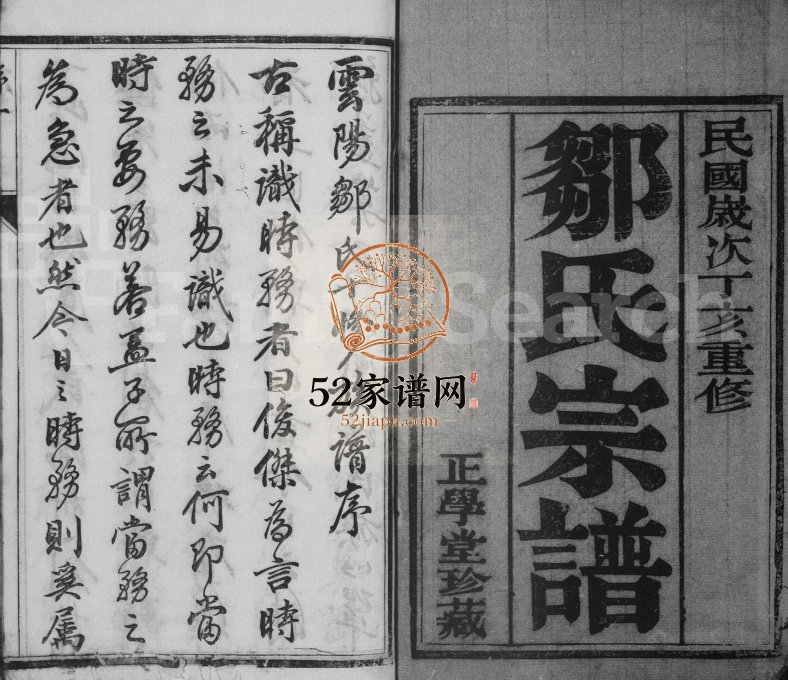 民國歲次丁亥重修
鄒氏宗譜
正學堂珍藏
雲陽鄒氏十修族譜序
古稱識時務者曰俊傑為言時
務之未易識也時務云何即當
時之要務若孟子所謂當務之
為急者也然今日之時務則奚屬
52家谱网
52jiapu.com
FamilySearch